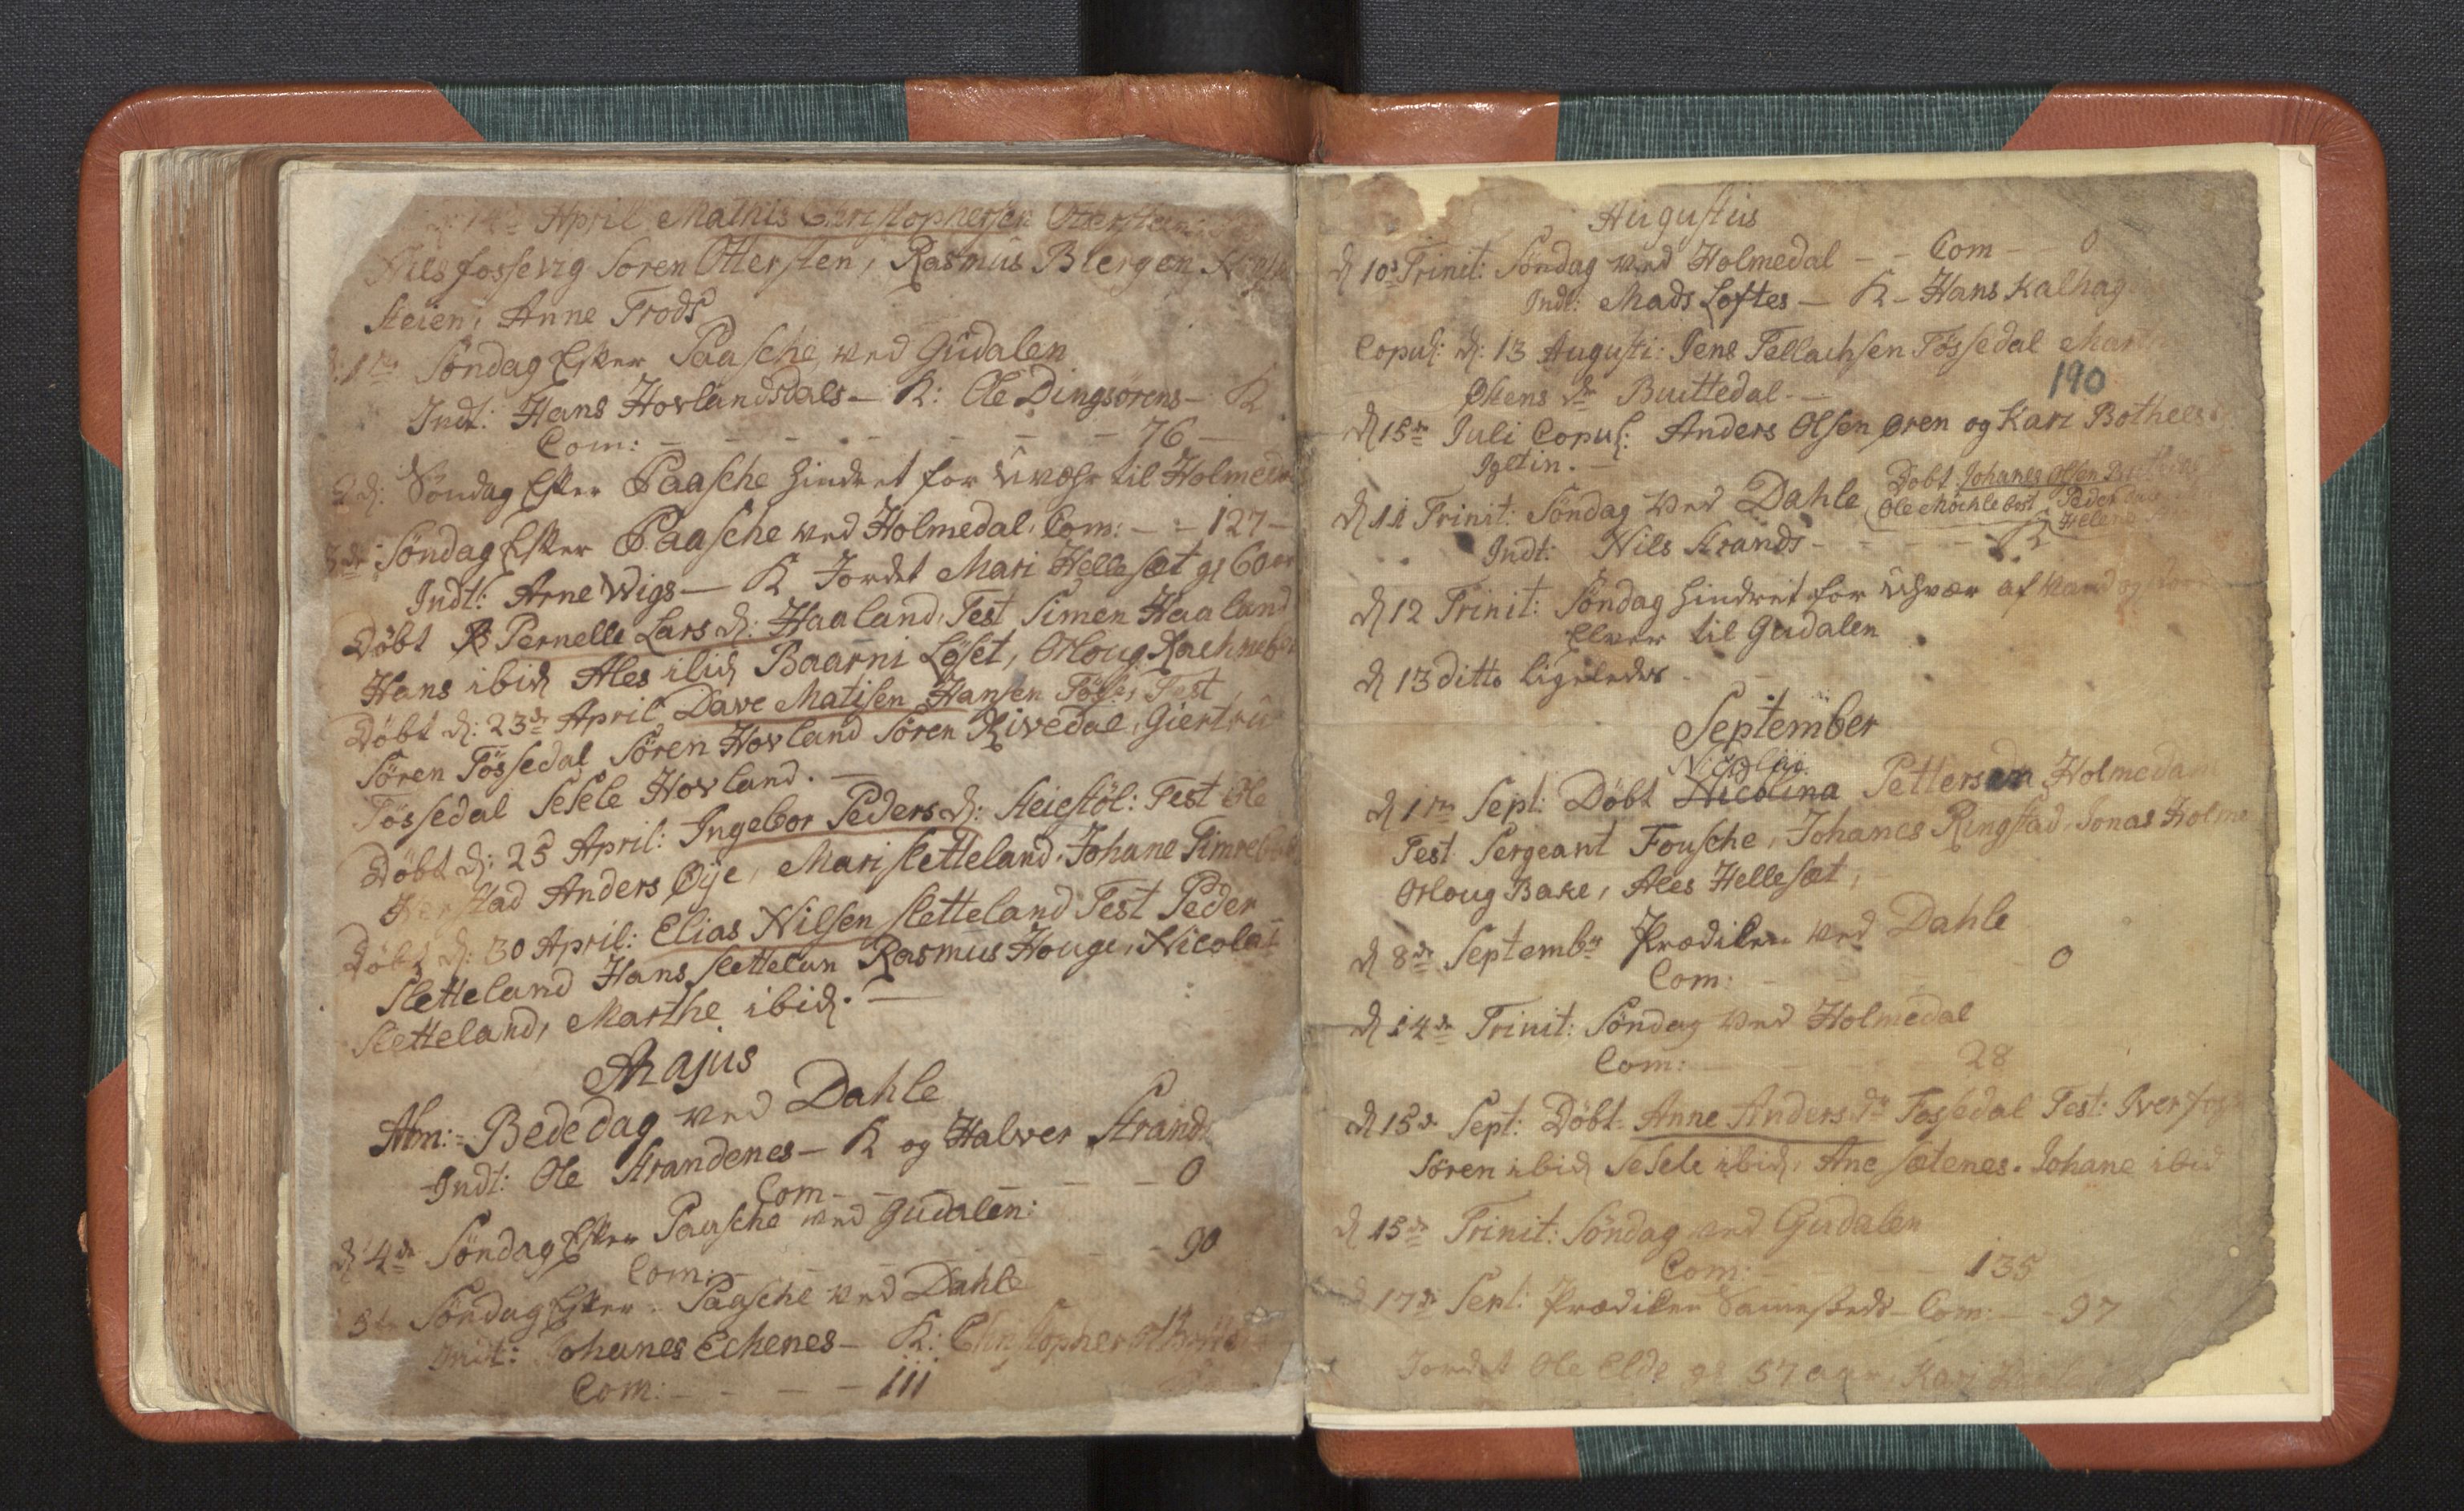 14de April Mathis Christophersen Ottersteen:
Nils fossevig Soren Ottersten, Rasmus Blergen
steien, Anne Trods
d: 1ste Søndag Efter Paasche ved Gudalen
Indt: Hans Hovlandsdals - K: Ole Dingsørens - K
Com: - - - - - - - 76 -
2 d: Søndag Efter Paasche hindret for Uvæhr til Holmeda
3de Søndag Efter Paasche ved Holmedal. Com: - - 127 -
Indt: Arne Wigs - K Jordet Mari Hellesæt gl 60 aar
Døbt Pernelle Lars d: Haaland. Test Simen Haaland
Hans ibid Ales ibid Baarni Løset, Oloug
Døbt d: 23de April Dave Matisen Hansen Tøsse, Test
Søren Tøssedal Søren Hovland Søren Rivedal, Giertru
Tøssedal Sesele Hovland. -
Døbt d: 25 April: Ingebor Peders d: Steiestøl: Test Ole
Anders Øye, Mari sletteland, Johane
Døbt d: 30 April: Elias Nilsen sletteland Test Peder
Sletteland Hans slettelan Rasmus Houge, Nicolai
Sletteland, Marthe ibid. -
Majus
Alm: Bededag ved Dahle
Indt: Ole Strandenes - K og Halver Strands
Com - - - - - 0
d 4de Søndag Efter Paasche ved Gudalen:
Com: - - - - - 90
5te Søndag Efter Paasche ved Dahle
Indt: Johanes Echenes - K: Christopher
Com: - - - - 111
Augustus
d 10de Trinit: Søndag ved Holmedal - - Com - - 0
Indt: Mads Loftes - K - Hans Kalhag
Copul: d: 13 Augusti: Jens Tellachsen Tøssedal Mar
190
d 15de Juli Copul: Anders Olsen Øren og Kari Bothels
Igelin. -
d 11 Trinit: Søndag ved Dahle Døbt Johanes Olsen
Ole Mochlebost Peder
Helen
Indt: Nils Strands - - - - K
d 12 Trinit: Søndag hindret for Uhvær af Vand og
Elver til Gudalen
d 13 ditto ligeledes -
September
Nicolai
d 1ste Sept: Døbt Nicolina Pettersen Holmeda
Test Sergeant Fousche, Johanes Ringstad, Jonas Holme
Oloug Bake, Ales Hellesæt,
d 8de Septembr Prædiken ved Dahle
Com: - - 0
d 14de Trinit: Søndag ved Holmedal
Com: - - 28
d 15de Sept: Døbt: Anne Anders dr Tossedal Test: Iver
Søren ibid Sesele ibid, Ane sætenes. Johane ibid
d 15de Trinit: Søndag ved Gudalen
Com: - - 135
d 17de Sept: Prædiken Sammesteds - Com: - - 97
Jordet Ole Elde gl 57 aar, Kari